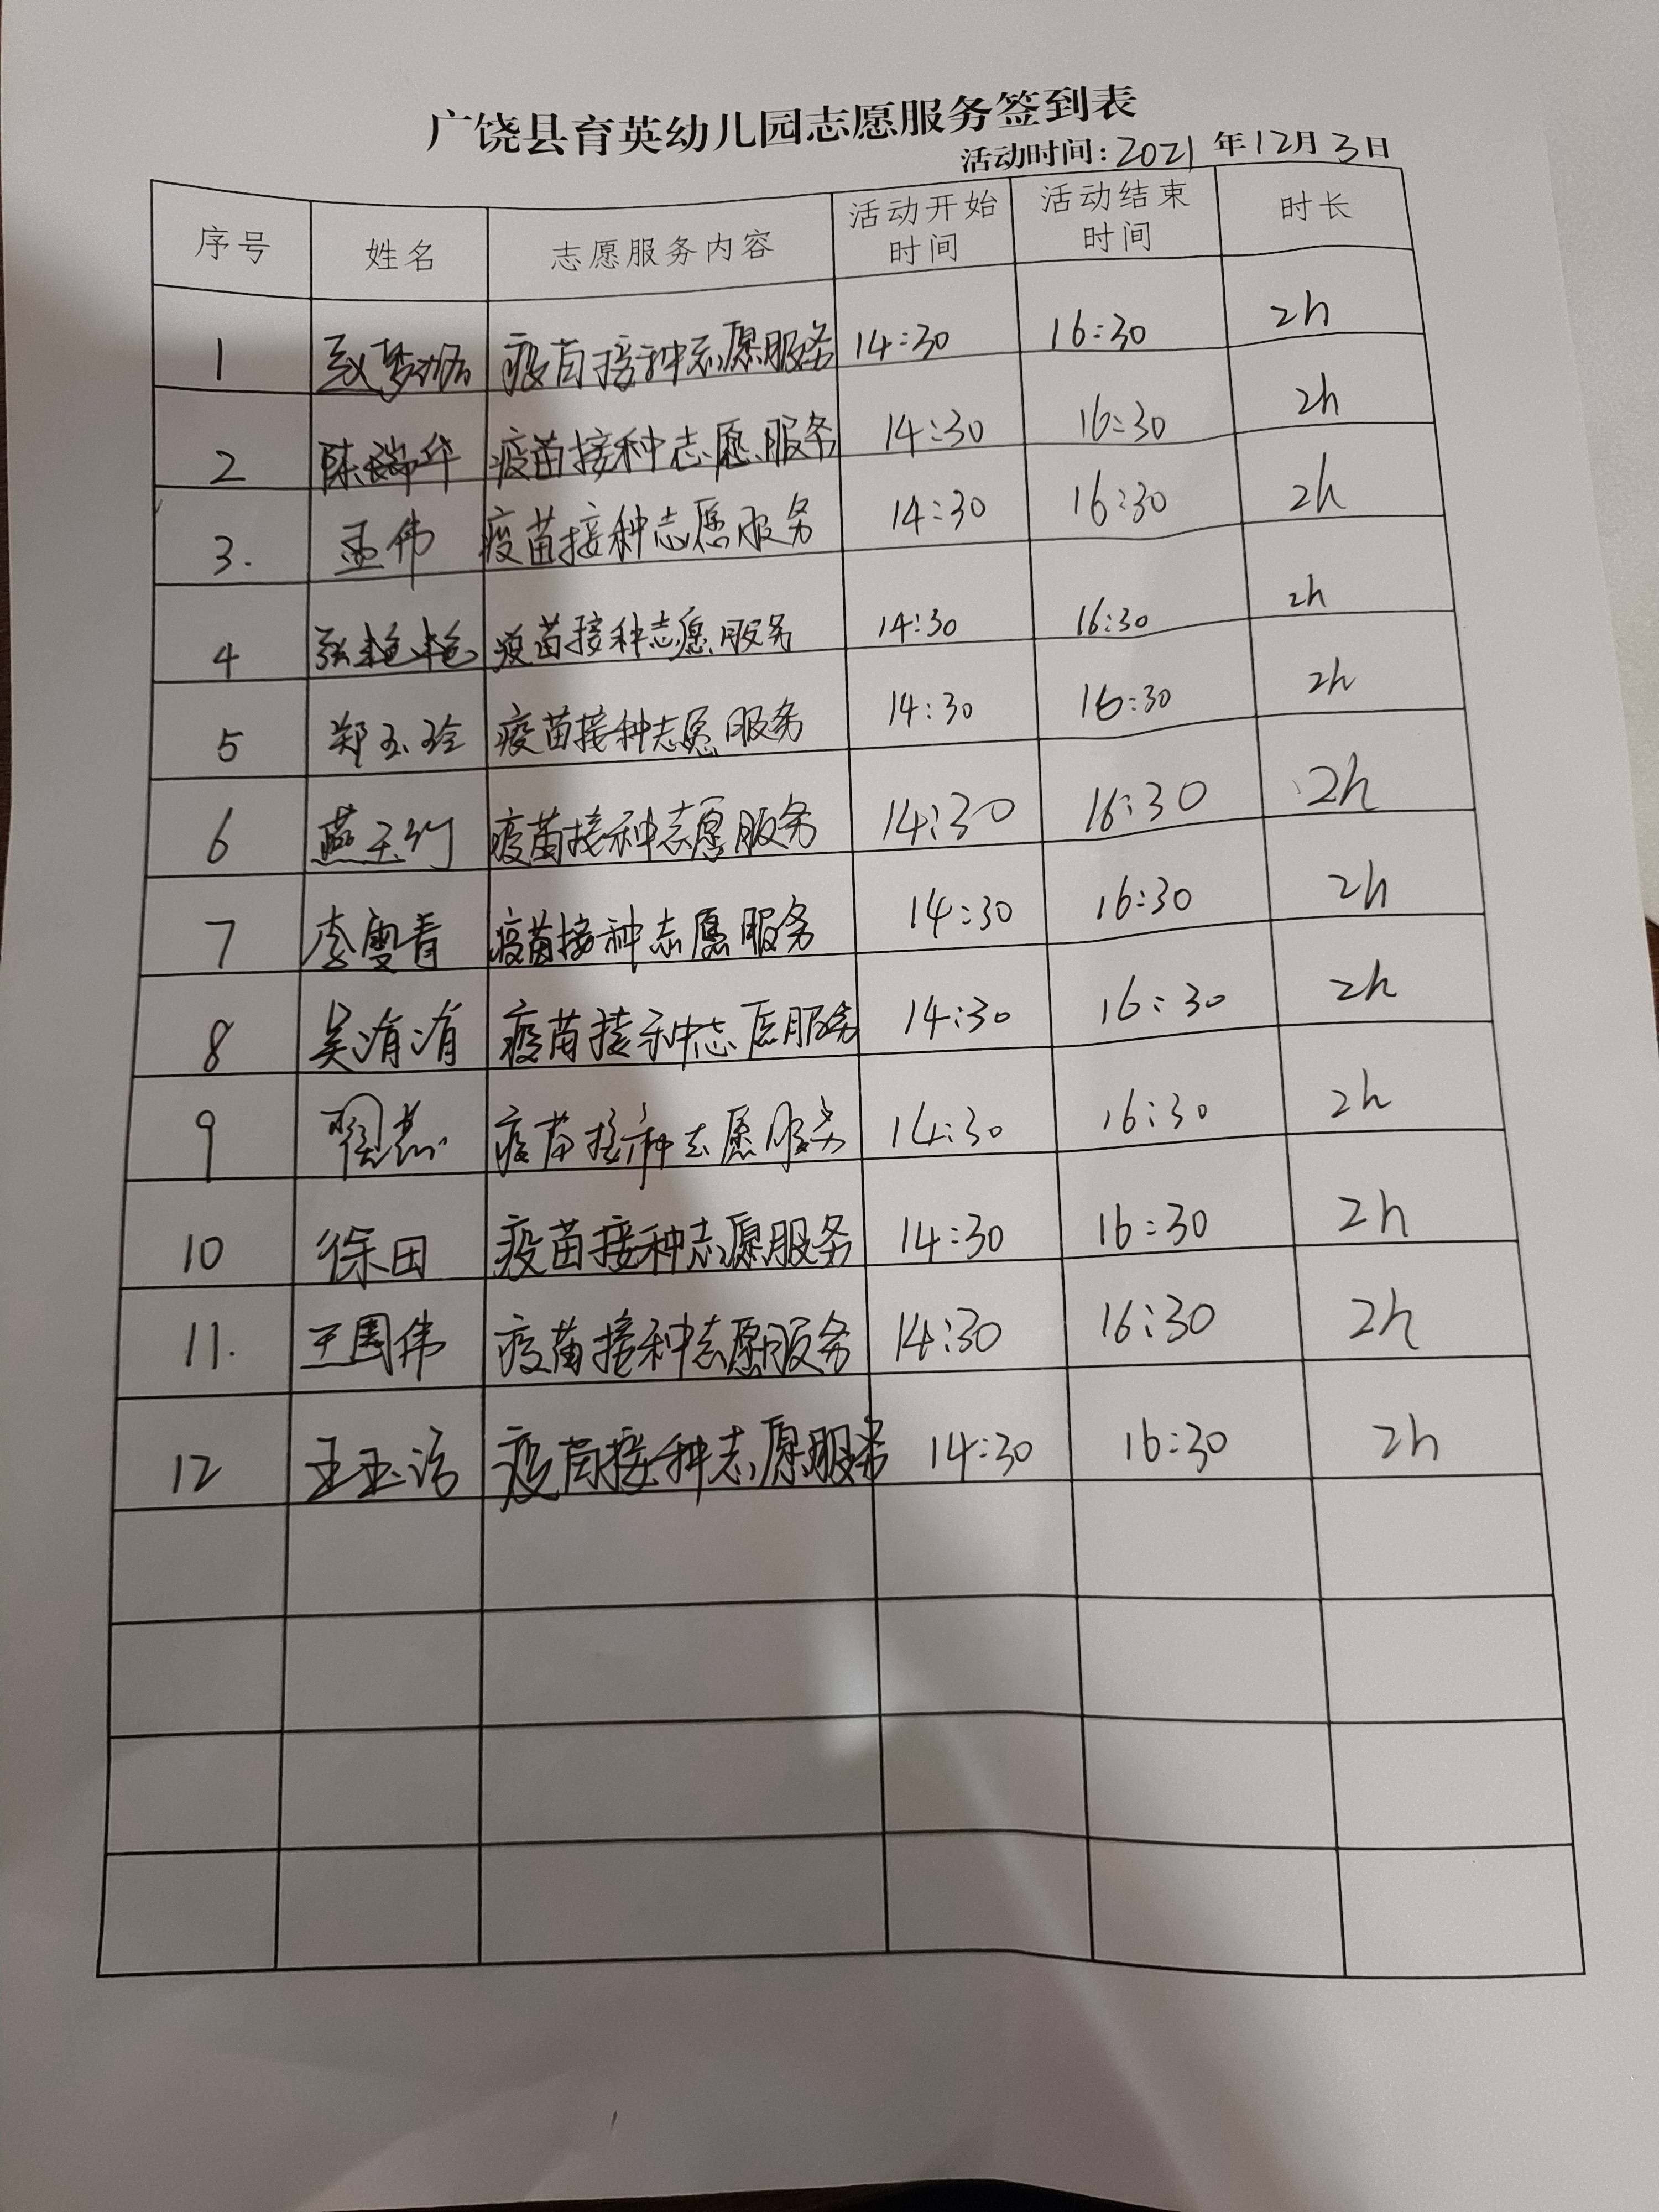 广饶县育英幼儿园志愿服务签到表
活动时间:2021年12月3日
序号 姓名 志愿服务内容 活动开始时间 活动结束时间 时长
1 疫苗接种志愿服务 14:30 16:30 2h
2 陈瑞华 疫苗接种志愿服务 14:30 16:30 2h
3. 孟伟 疫苗接种志愿服务 14:30 16:30 2h
4 张艳艳 疫苗接种志愿服务 14:30 16:30 2h
5 郑玉玲 疫苗接种志愿服务 14:30 16:30 2h
6 疫苗接种志愿服务 14:30 16:30 2h
7 李雪青 疫苗接种志愿服务 14:30 16:30 2h
8 吴洧洧 疫苗接种志愿服务 14:30 16:30 2h
9 疫苗接种志愿服务 14:30 16:30 2h
10 徐田 疫苗接种志愿服务 14:30 16:30 2h
11. 王周伟 疫苗接种志愿服务 14:30 16:30 2h
12 王玉洁 疫苗接种志愿服务 14:30 16:30 2h